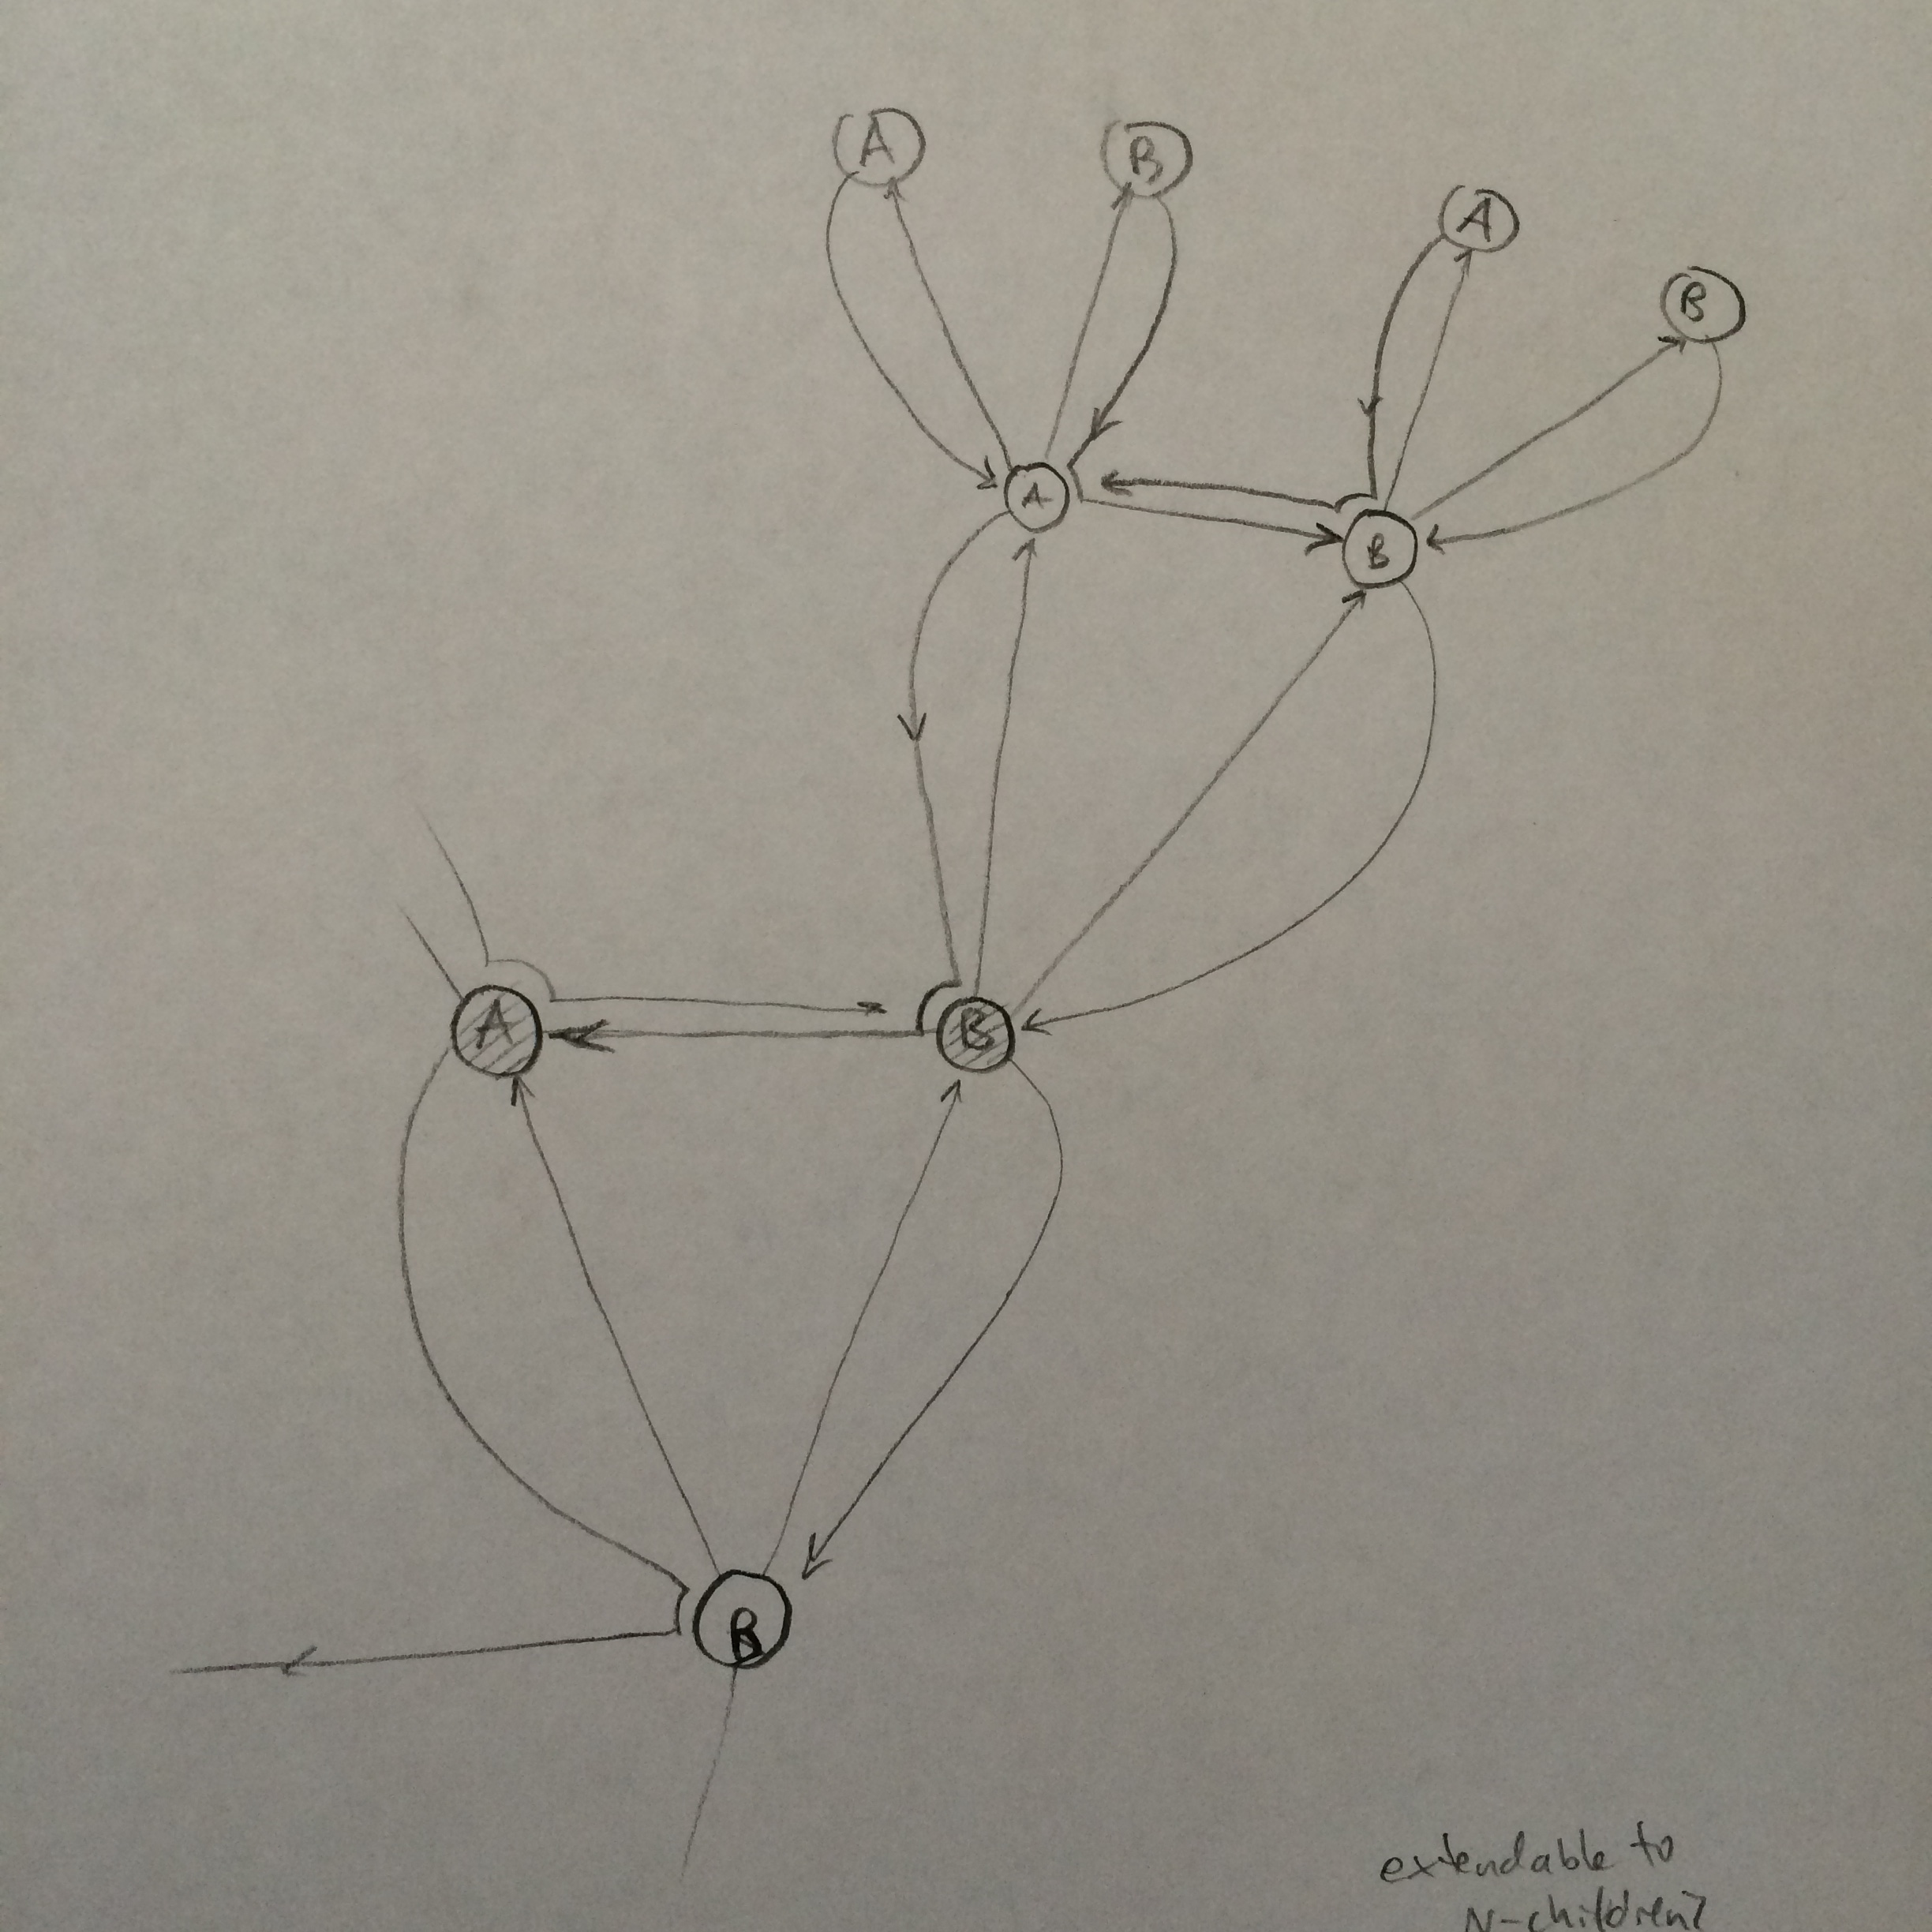 A
B
A
B
A
B
A
B
B
extendable to
N-children?